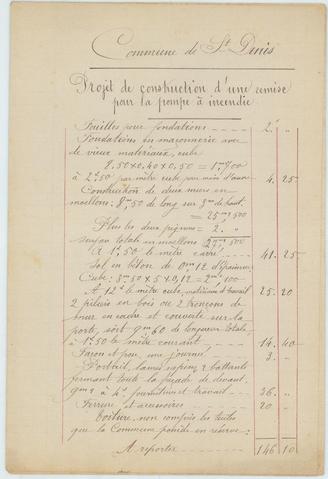 Commune de St Denis
Projet de construction d'une remise
pour la pompe à incendie
Fouilles pour fondations 2. "
Fondations en maçonnerie avec
de vieux matériaux, cube
8,50 x 0,40 x 0,50 = 1,700
à 2,50 par mètre cube par main d'œuvre 4 25
Construction de deux murs en
moellons: 8m50 de long sur 3m de haut.
= 25m,500
Plus les deux pignons = 2. "
surface totale en moellons 27m,500
A 1,50 le mètre carré 41. 25
Sol en béton de 0m,12 d'épaisseur
Cube: 3m50 x 5 x 0,12 = 2m,100
A 12f le mètre cube, matériaux et travail 25. 20
2 piliers en bois ou 2 tronçons de
et couverte sur la
porte, soit 9m60 de longueur totale
à 1f50 le mètre courant 14. 40
Façon et pose, une journée 3. "
Portail, lames sapin, 2 battants
fermant toute la façade de devant,
9m2 à 4f. fourniture et travail 36. "
Ferrure et accessoires 20 "
Toiture, non compris les tuiles
que la Commune possède en réserve:
A reporter 146 10